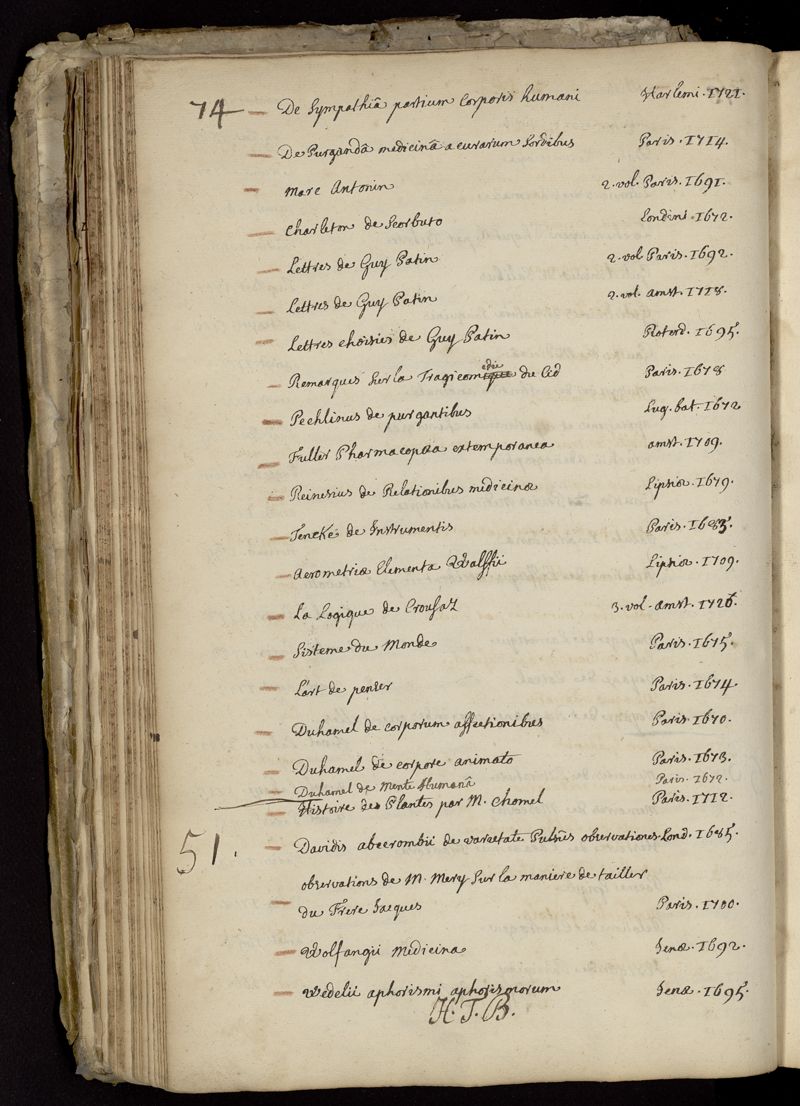 74 De Sympathiâ partium corporis humani Harlemi. 1721.
De Purgandâ medicinâ a curarum Sordibus Paris. 1714.
Marc Antonin 2. vol. Paris. 1691.
Charleton de Scorbuto Londini. 1672.
Lettres de Guy Patin 2. vol Paris. 1692.
Lettres de Guy Patin 2. vol. amst. 1718.
Lettres choisies de Guy Patin Roterd. 1695.
Remarques sur la Tragicomedie du Cid Paris. 1678
Pechlinus de purgantibus Lug. bat. 1672
Fuller Pharmacopœa extemporanea amst. 1709.
Reinesius de Relationibus medicinæ Lipsiæ. 1679.
Tencke de Instrumentis Paris. 1683.
Aerometriæ Elementa Walffii Lipsiæ. 1709.
La Logique de Crousaz 3. vol. amst. 1726.
Sisteme du Monde Paris. 1675.
L'art de penser Paris. 1674
Duhamel de corporum affectionibus Paris. 1670.
Duhamel de corpore animato Paris. 1673.
Duhamel de Mente Humanâ Paris. 1672.
Histoire des Plantes par M. Chomel Paris. 1712.
51. Davidis abercrombii de varietate Pulsûs observationes Lond. 1685.
observations de M. Mery sur la maniere de tailler
du Frere Jacques Paris. 1700.
Wolfangii Medicina Jenæ. 1692.
Wedelii aphorismi aphorismorum Jenæ. 1695.
H. T. B.